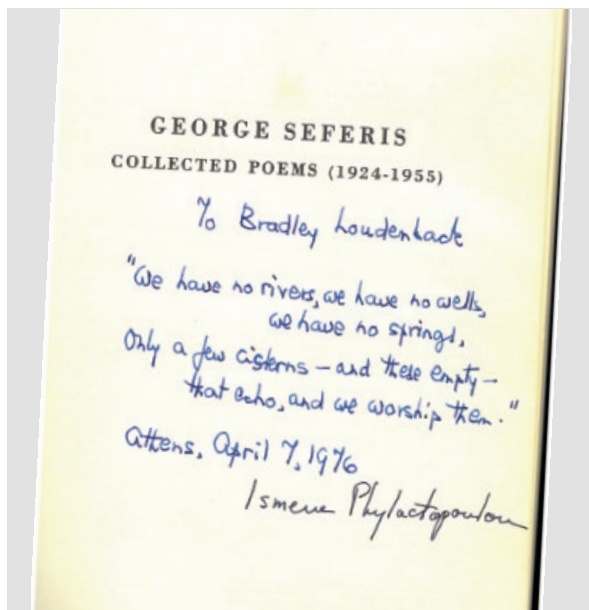 GEORGE SEFERIS
COLLECTED POEMS (1924-1955)
To Bradley Loudenback
"We have no rivers, we have no wells,
we have no springs,
Only a few cisterns — and these empty —
that echo, and we worship them."
Athens, April 7, 1976
Ismene Phylactopoulou